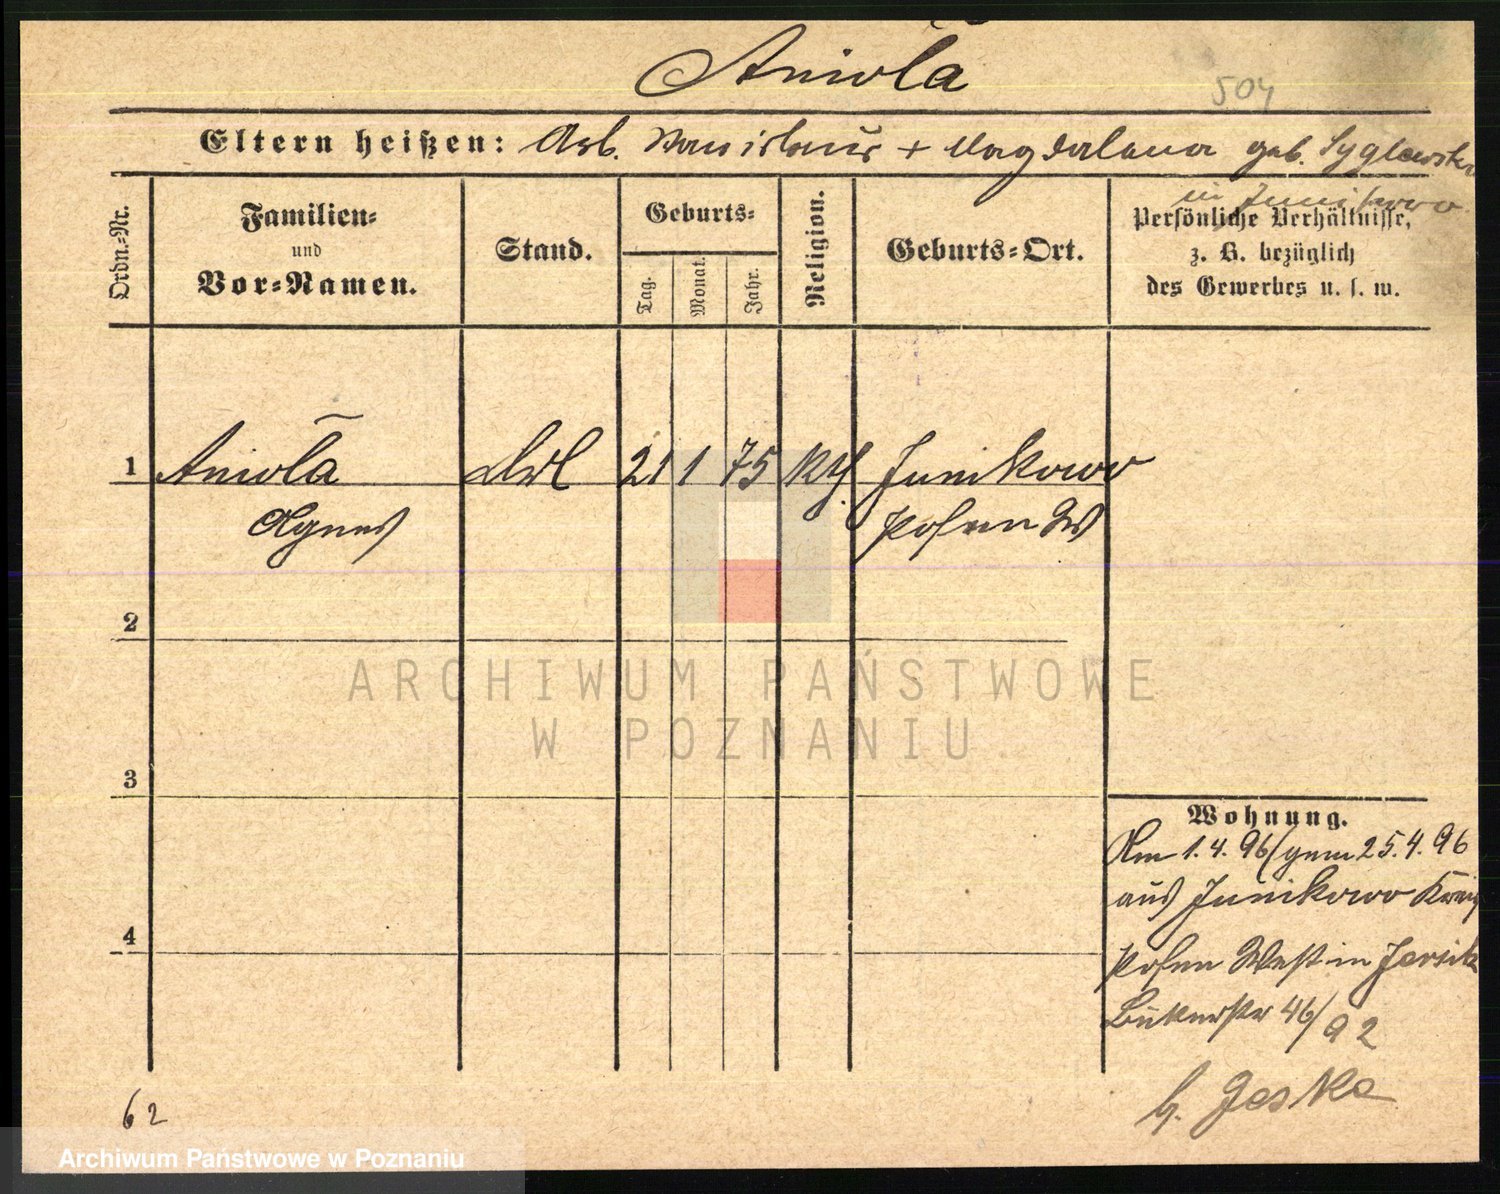 Anioła
504
Eltern heißen: Arb. Stanislaus + Magdalena geb. Syglewska
in Junikowo
Ordn.-Nr.
Familien-
und
Vor-Namen.
Stand.
Geburts-
Tag.
Monat.
Jahr.
Religion.
Geburts-Ort.
Persönliche Verhältnisse,
z. B. bezüglich
des Gewerbes u. s. w.
1 Anioła 21 1 75 kth Junikowo
Agnes Posen W
2
ARCHIWUM PAŃSTWOWE
W POZNANIU
3
Wohnung.
Am 1.4.96/gem 25.4.96
aus Junikowo Kreis
4
Posen West in Jersitz
Bukerstr 46/92
b. Jeske
62
Archiwum Państwowe w Poznaniu